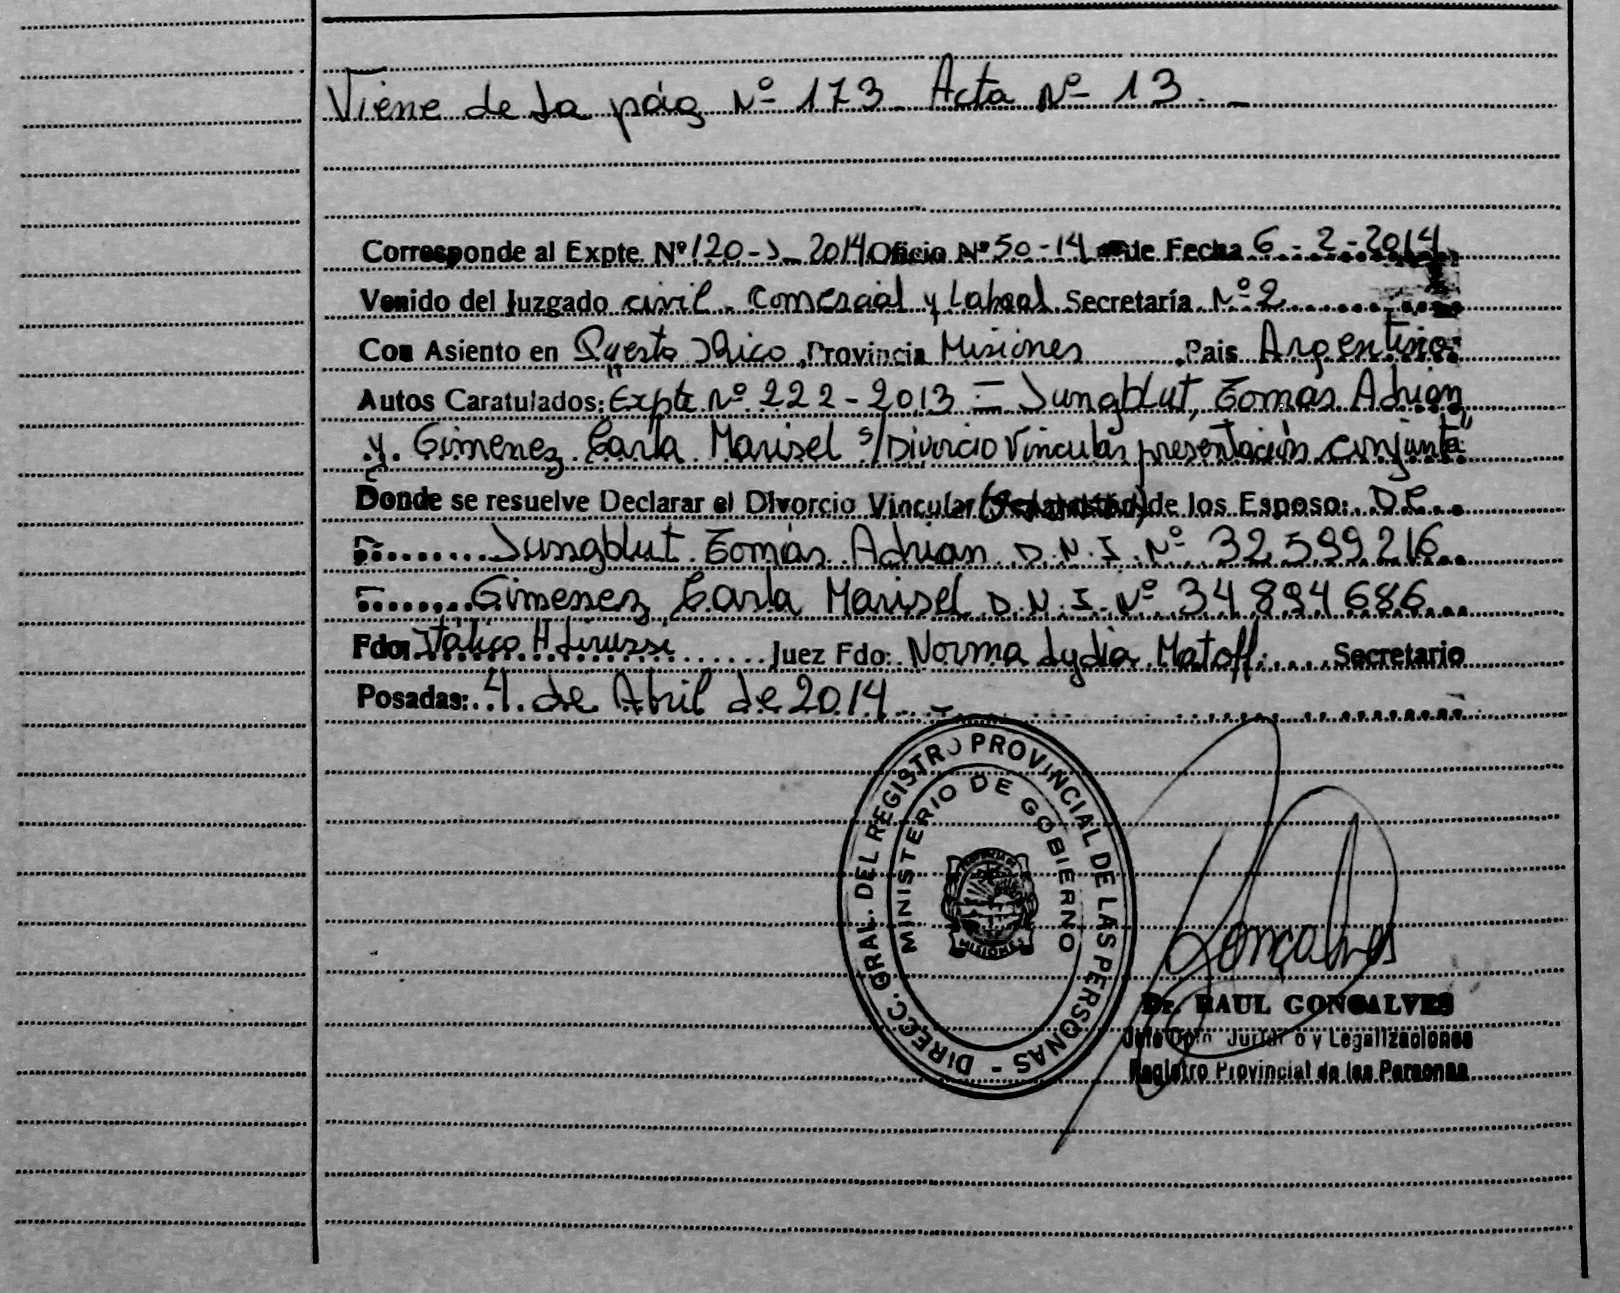 Viene de la pág Nº 173 - Acta Nº 13. -
Corresponde al Expte Nº 120-J-2014 Oficio Nº 50-14 de Fecha 6-2-2014
Venido del Juzgado civil. Comercial y Laboral Secretaría Nº 2
Con Asiento en Puerto Rico Provincia Misiones Pais Argentina
Autos Caratulados: "Expte Nº 222-2013 = Jungblut, Tomás Adrian
y. Gimenez Carla Marisel s/Divorcio Vincular presentación conjunta"
Donde se resuelve Declarar el Divorcio Vincular de los Esposo: D.E.
Jungblut Tomás Adrian D.N.I. Nº 32.599.216
Gimenez Carla Marisel D.N.I. Nº 34.894.686
Fdo: Juez Fdo: Norma Lydia Matoff Secretario
Posadas: 4 de Abril de 2014 -
DIRECC. GRAL. DEL REGISTRO PROVINCIAL DE LAS PERSONAS -
MINISTERIO DE GOBIERNO
MISIONES
Goncalves
Dr. RAUL GONCALVES
Jefe Dpto. Jurídico y Legalizaciones
Registro Provincial de las Personas